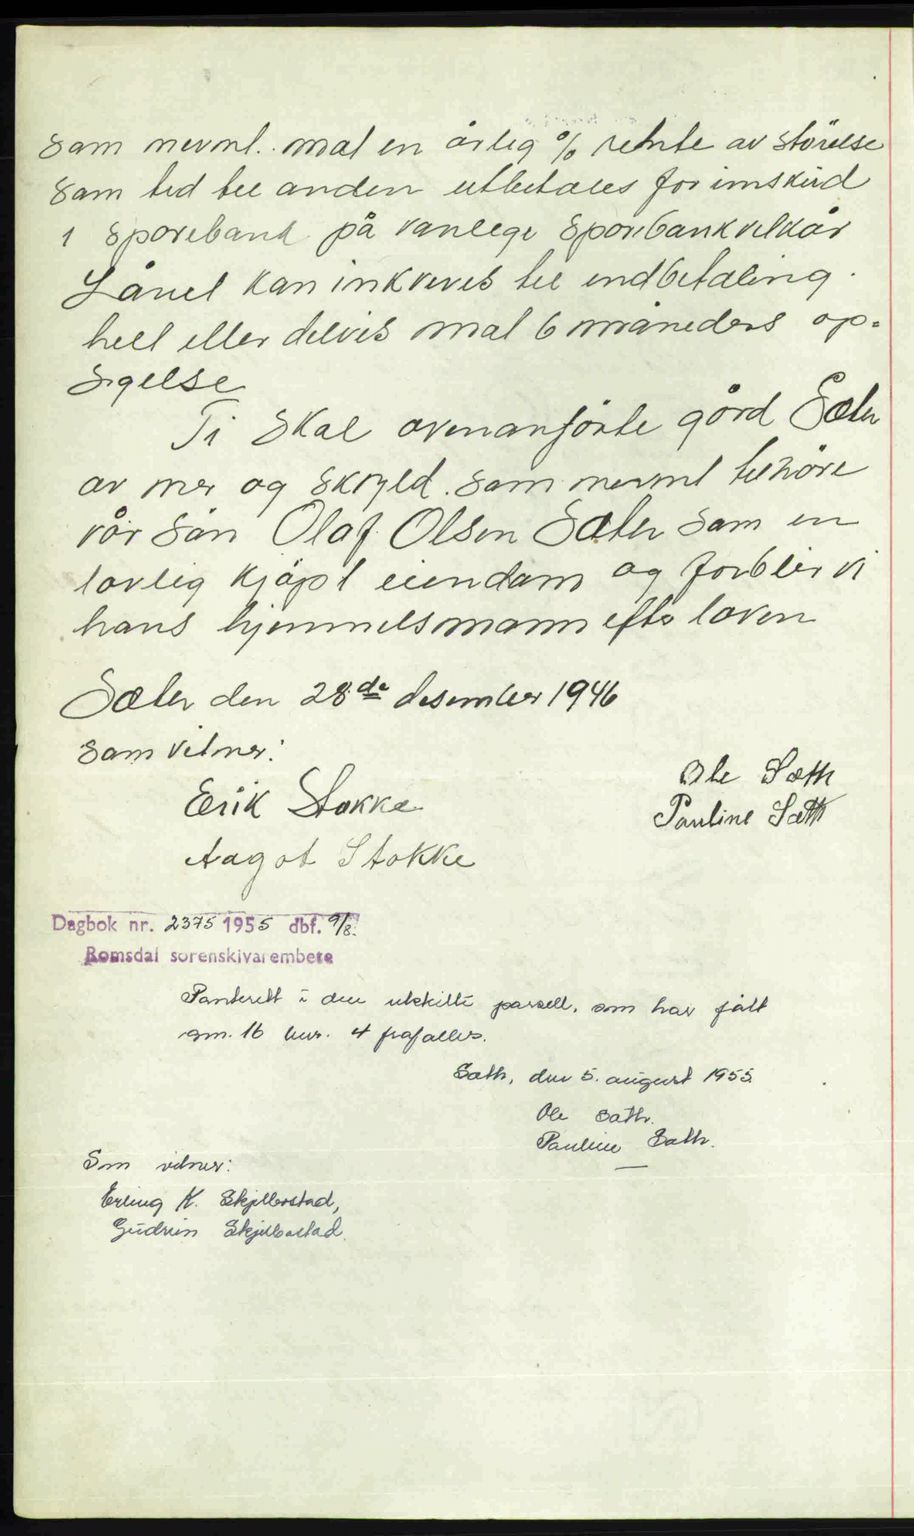 Sam nevnt. mot en årlig % rente av størelse
Sam tid til anden utbetales for inskud
i Sporebank på vanlege Sporebankvilkår
Lånet kan inkreves til indbetaling.
helt eller delvis mot 6 måneders op-
sigelse
Ti Skal ovenanførte gård Sæter
av mer og Skyld. Sam nevnt tilhøre
vår Sån Olaf. Olsen Sæter Sam en
lovlig kjøpt eiendam og forblir vi
hans hjemmelsmann efter loven
Sæter den 28de desember 1946
Sam vitner:
Ole Sæth
Erik Stokke
Pauline Sæth
Aagot Stokke
Dagbok nr. 2375 1955 dbf. 9/8.
Romsdal sorenskrivarembete
Panterett i den utskilte parsell, som har fått
gnr. 16 bnr. 4 frafalles.
Sæth, den 5. august 1955.
Ole Sæth.
Pauline Sæth.
Som vitner:
Erling K. Skjelbostad,
Gudrun Skjelbostad.